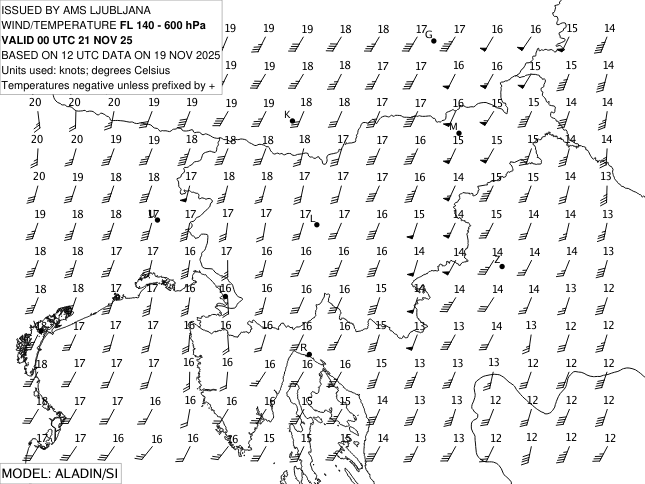 ISSUED BY AMS LJUBLJANA
WIND/TEMPERATURE FL 140 - 600 hPa
VALID 00 UTC 21 NOV 25
BASED ON 12 UTC DATA ON 19 NOV 2025
Units used: knots; degrees Celsius
Temperatures negative unless prefixed by +
19 19 18 18 18 17 17 16 16 15 14
G
19 19 18 18 17 17 16 16 15 15 14
20 20 20 19 19 19 19 18 18 17 17 16 15 15 14 14
K
M
20 20 19 19 18 18 18 18 17 17 16 15 15 15 14 14
20 19 18 18 17 18 18 17 17 17 16 14 15 15 14 13
19 18 18 17 17 17 17 17 17 16 15 14 15 14 14 13
L
18 18 17 17 16 17 16 16 16 16 14 14 14 14 14 13
Z
18 18 17 17 16 16 16 16 16 15 14 14 14 14 13 12
17 17 17 16 16 16 16 16 15 13 13 14 13 12 12
R
18 17 17 17 16 16 16 16 16 15 13 13 13 12 12 12
18 17 17 16 16 16 16 15 15 14 13 13 12 12 12 12
17 17 16 16 16 16 15 15 15 14 13 13 12 12 12 12
MODEL: ALADIN/SI